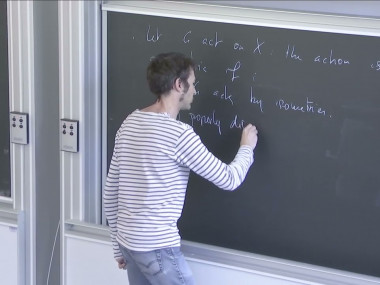 . Let G act on X. the action is
if :
acts by isometries.
properly di